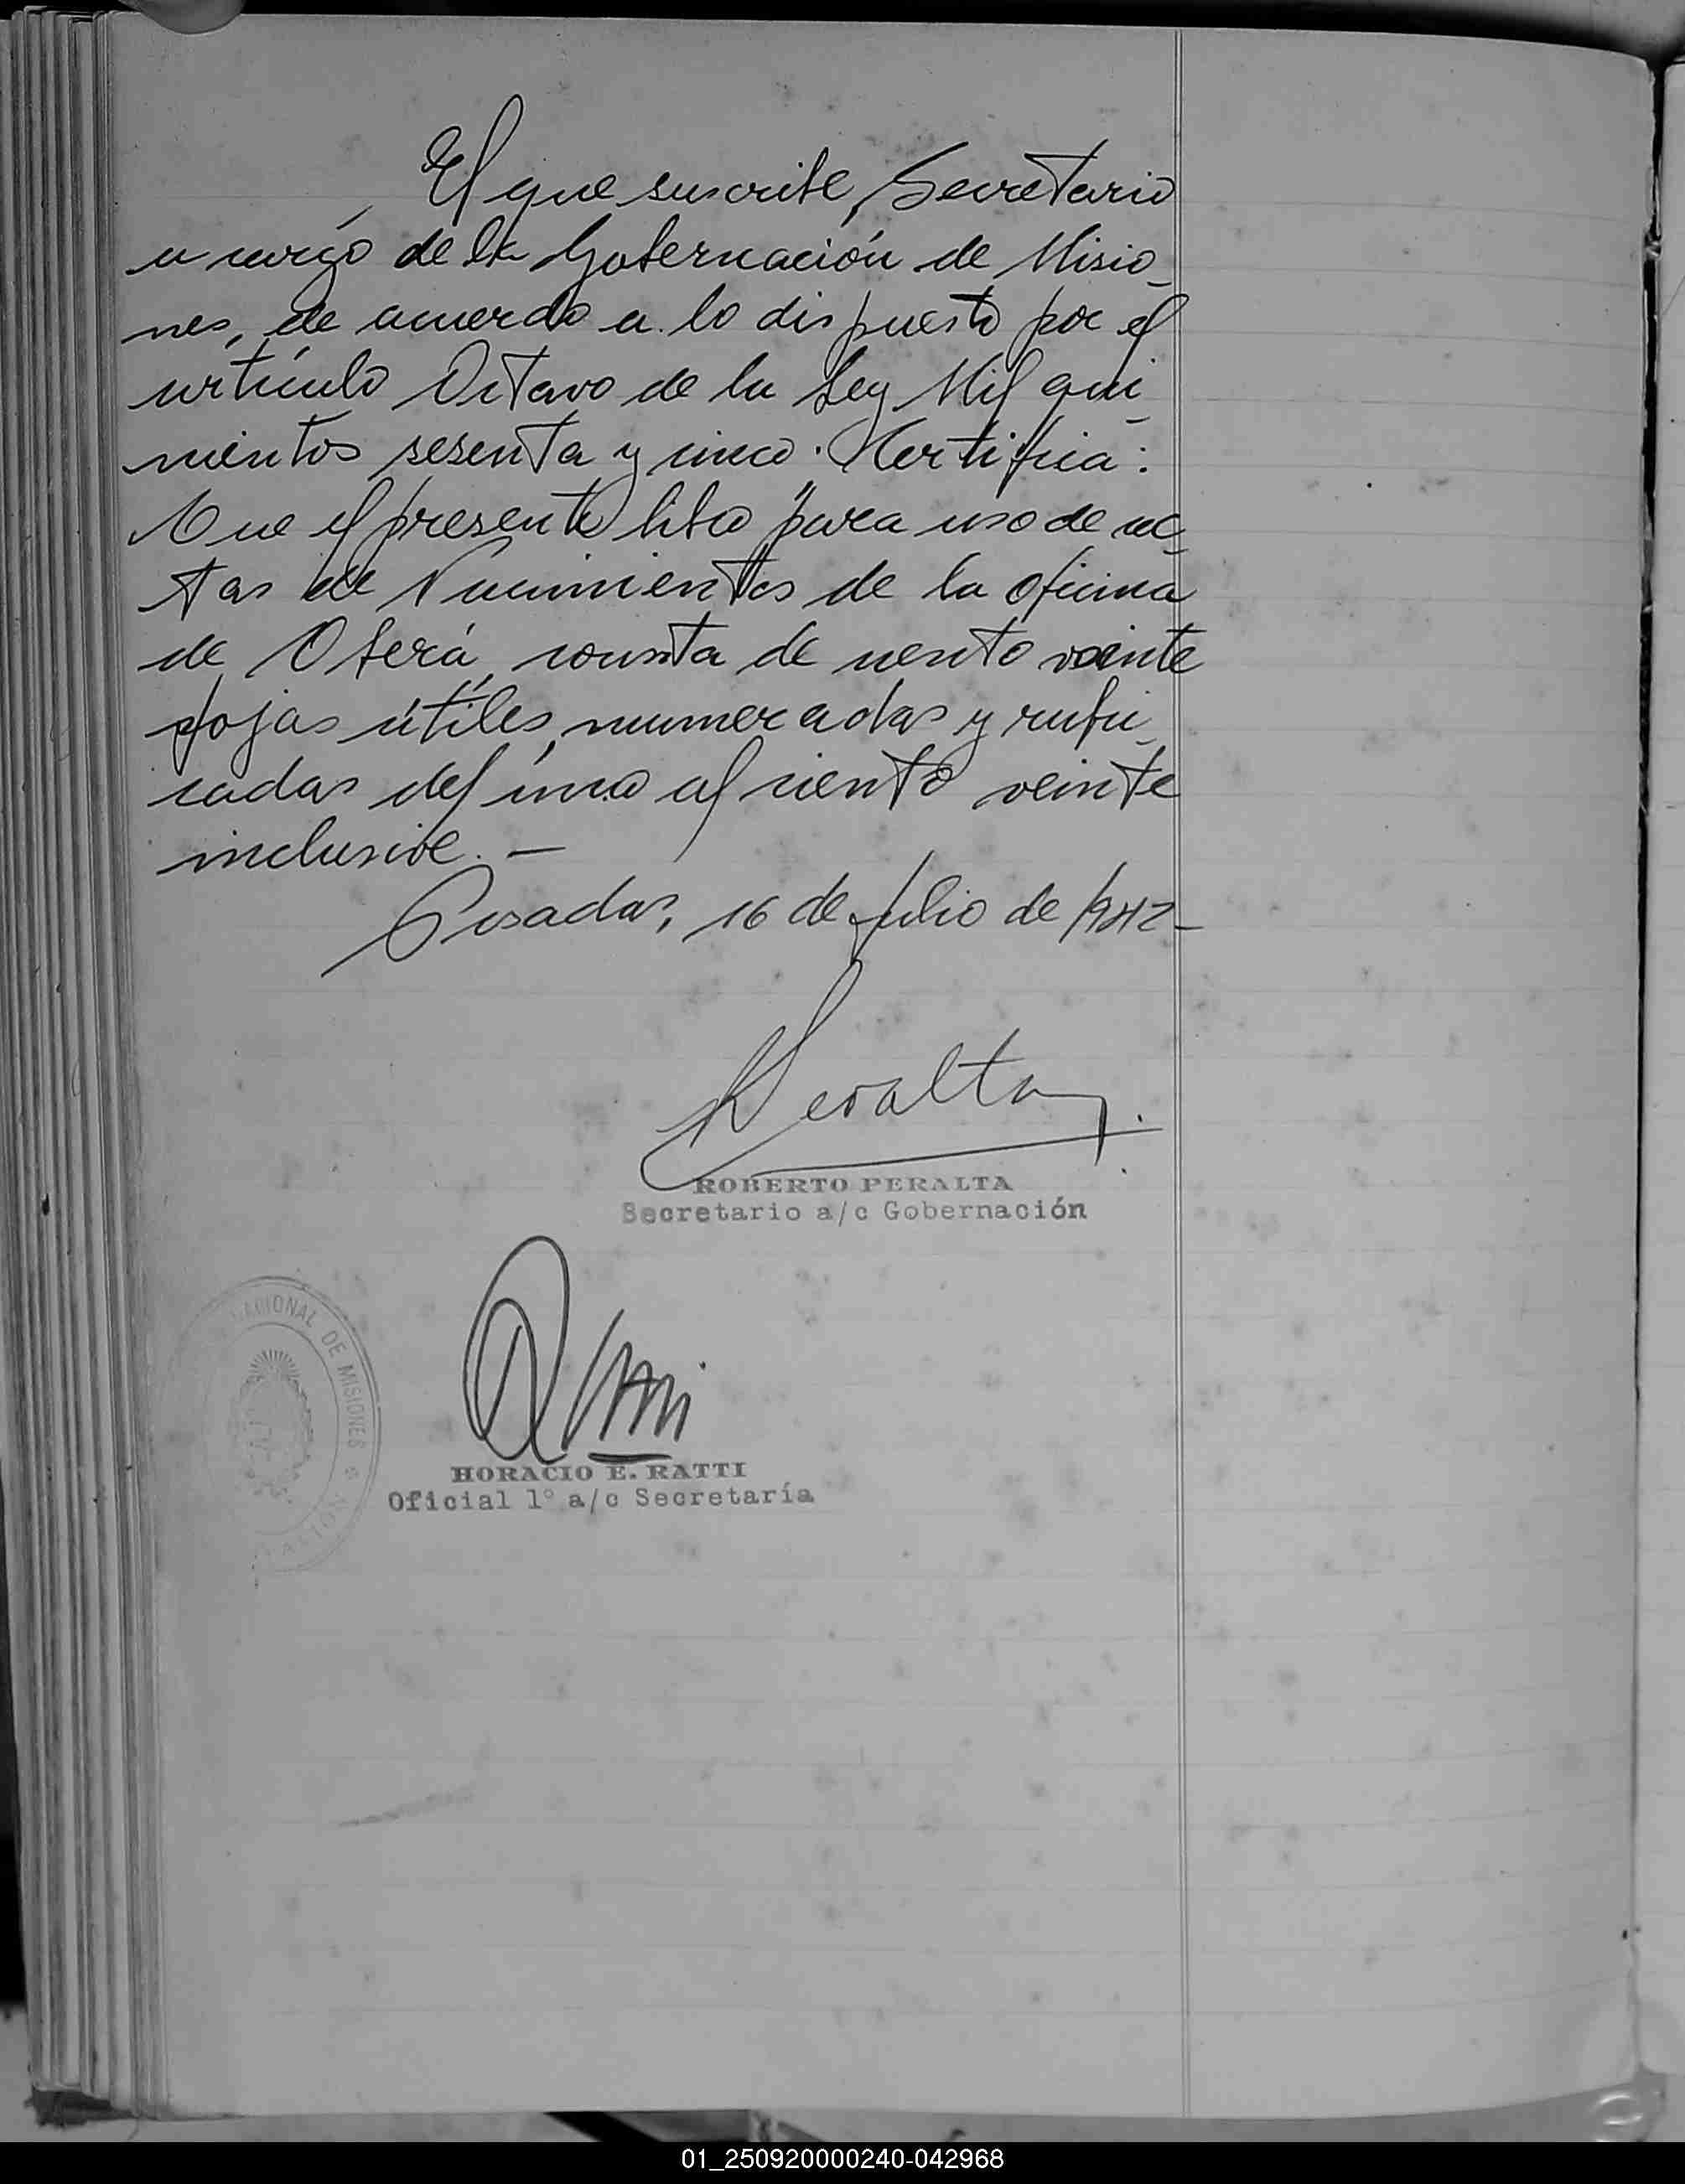 El que suscribe, Secretario
a cargo de la Gobernación de Misio_
nes, de acuerdo a lo dispuesto por el
artículo Octavo de la Ley Mil qui_
nientos sesenta y cinco. Certifica:
Que el presente libro para uso de ac_
tas de Nacimientos de la oficina
de Oberá, consta de ciento veinte
fojas útiles, numeradas y rubri_
cadas del uno al ciento veinte
inclusive. —
Posadas, 16 de julio de 1942-
Peralta
ROBERTO PERALTA
Secretario a/c Gobernación
NACIONAL DE MISIONES
HORACIO E. RATTI
Oficial 1º a/c Secretaría
01_250920000240-042968